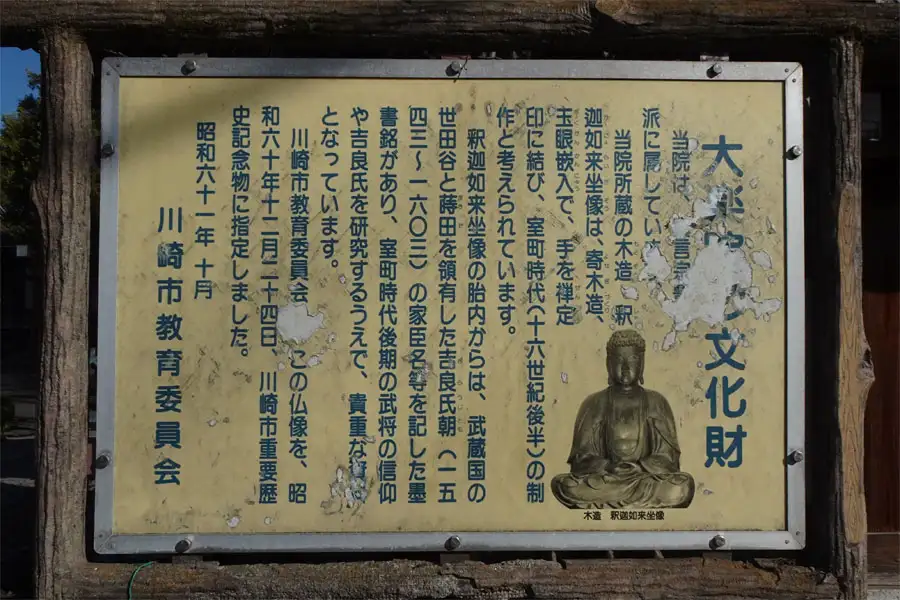 大楽 文化財
当院は、 言宗
派に属してい
当院所蔵の木造 釈
迦如来坐像は、寄木造、
玉眼嵌入で、手を禅定
印に結び、室町時代(十六世紀後半)の制
作と考えられています。
釈迦如来坐像の胎内からは、武蔵国の
世田谷と蒔田を領有した吉良氏朝(一五
四三〜一六〇三)の家臣名等を記した墨
書銘があり、室町時代後期の武将の信仰
や吉良氏を研究するうえで、貴重な
となっています。
川崎市教育委員会 この仏像を、昭
和六十年十二月二十四日、川崎市重要歴
史記念物に指定しました。
昭和六十一年 十月
川崎市教育委員会
木造 釈迦如来坐像